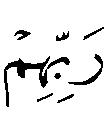 رَبِّهِمْ